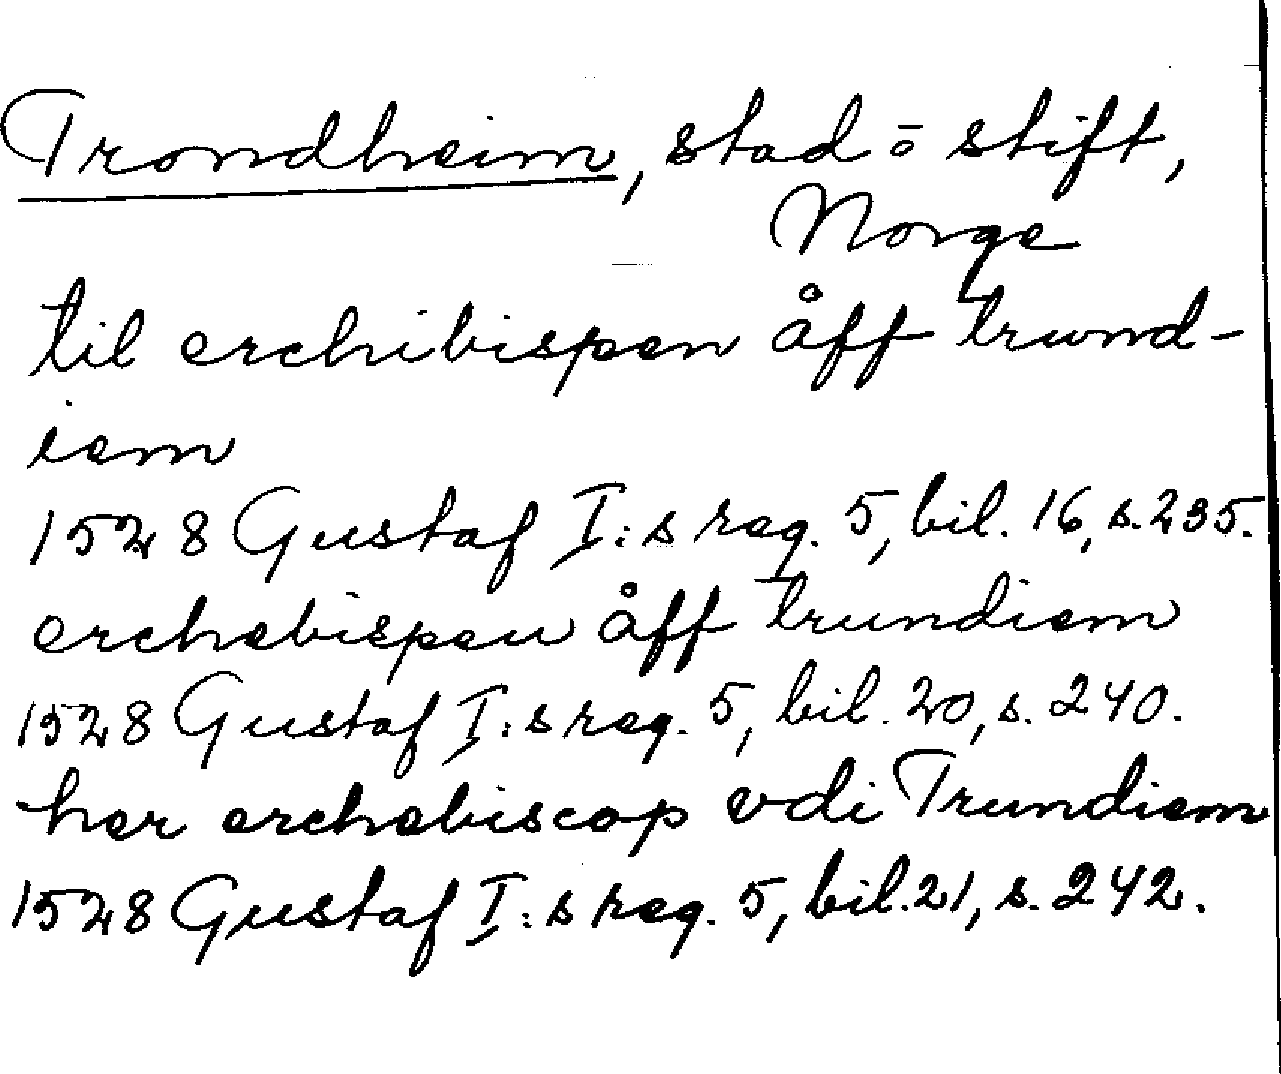 Trondheim, stad o stift,
Norge
til erchibispen åff trund-
iem
1528 Gustaf I:s reg. 5, bil. 16, s. 235.
erchebispen åff trundiem
1528 Gustaf I:s reg. 5, bil. 20, s. 240.
her erchebiscop vdi Trundiem
1528 Gustaf I:s reg. 5, bil. 21, s. 242.